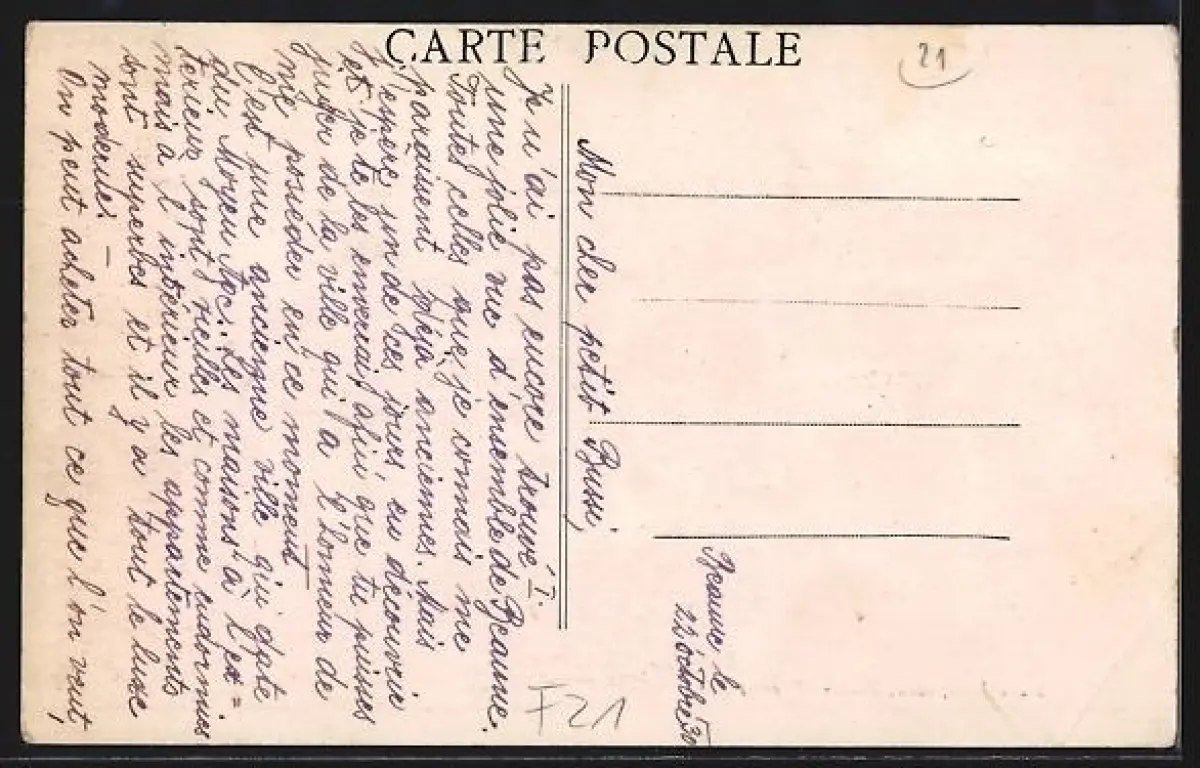 CARTE POSTALE
21
Beaune le
22 octobre 30
Mon cher petit Bussi,
Je n'ai pas encore trouvé I.
une jolie vue d'ensemble de Beaune.
Toutes celles que je connais me
paraissent déjà anciennes. Mais
j'espère un de ces jours en découvrir
et je te les enverrai afin que tu puisses
juger de la ville qui a l'honneur de
me posséder en ce moment
C'est une ancienne ville qui date
du Moyen Age: Les maisons à l'ex=
térieur sont vieilles et comme endormies
mais à l'intérieur les appartements
sont superbes et il y a tout le luxe
moderne. —
On peut acheter tout ce que l'on veut,
F21